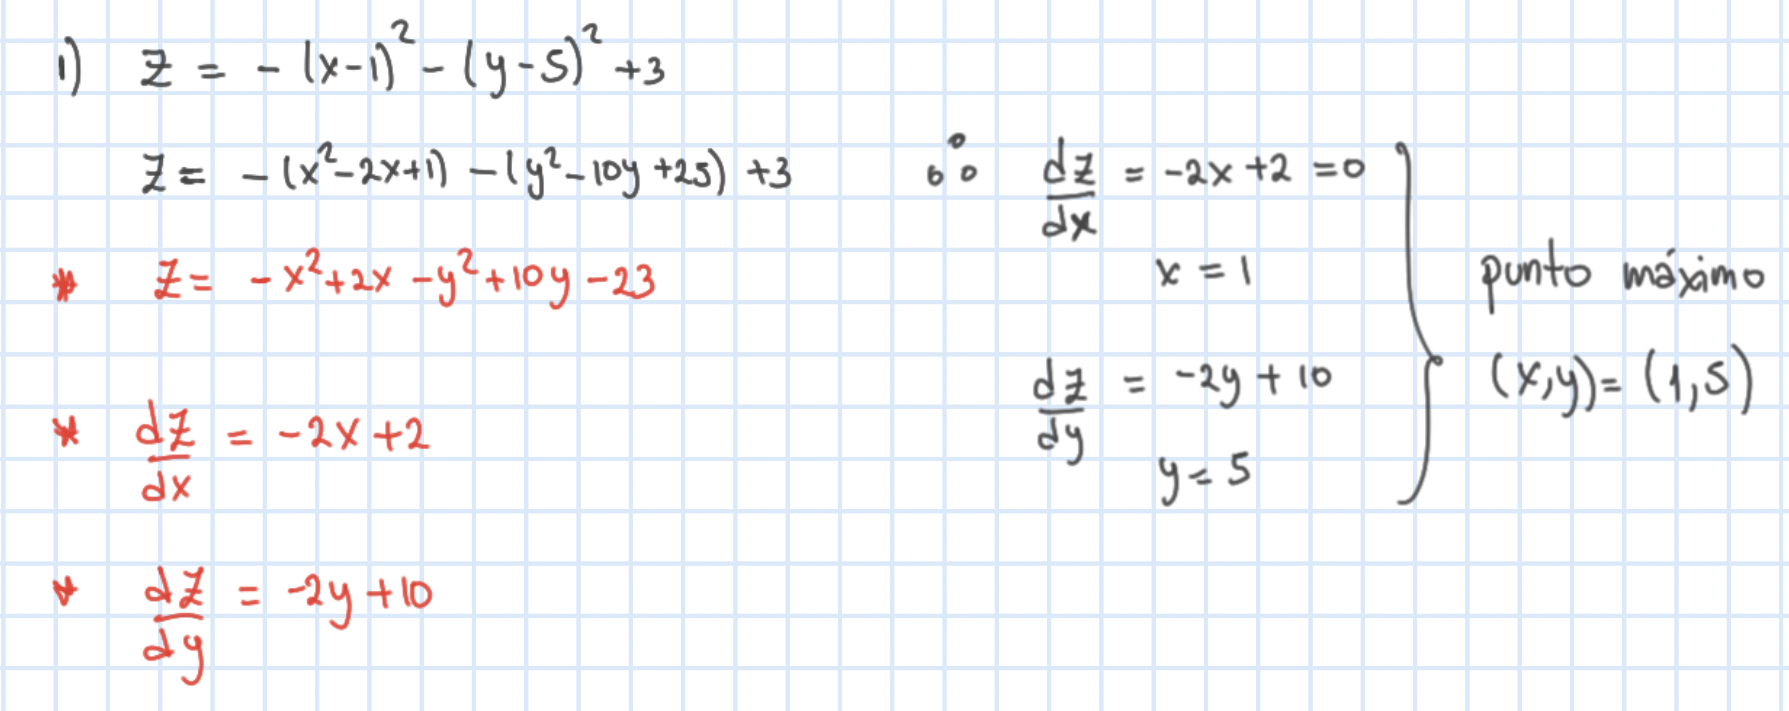 1) Z = - (x-1)² - (y-5)² +3
Z = - (x²-2x+1) - (y²-10y+25) +3
* Z = -x²+2x -y²+10y -23
* dZ/dx = -2x+2
* dZ/dy = -2y+10
∴ dz/dx = -2x+2 =0
x = 1
dz/dy = -2y + 10
y = 5
punto máximo
(x,y) = (1,5)